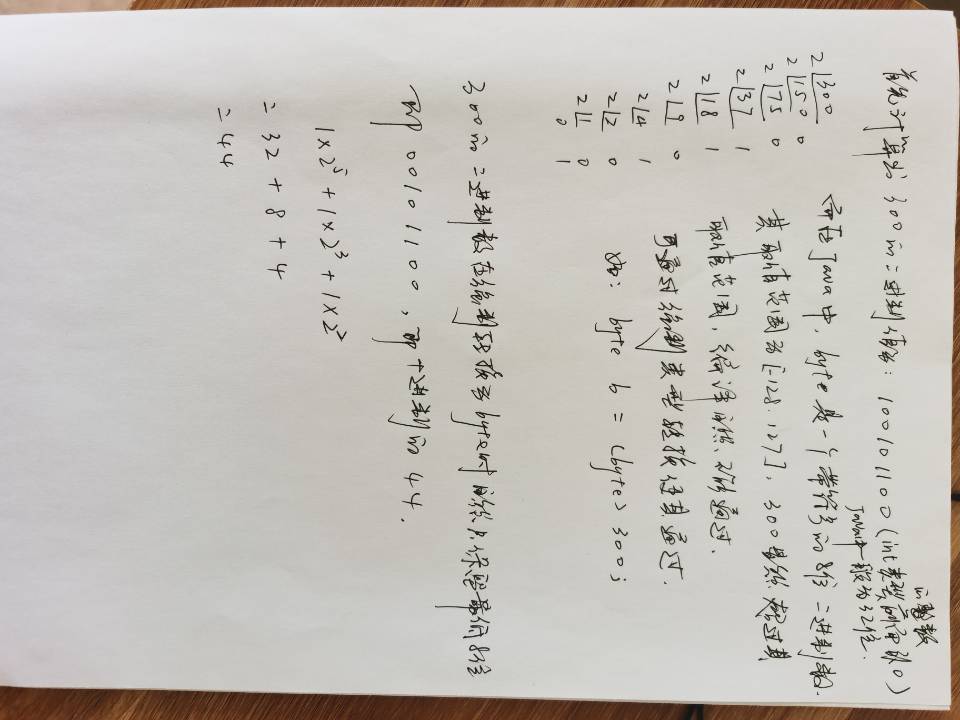 的整数
首先计算出300的二进制值为：100101100（int类型前面取0）
Java中一般为32位.
2 300
2 150 0
2 75 0
2 37 1
2 18 1
2 9 0
2 4 1
2 2 0
2 1 0
0 1
而在Java中，byte是一个带符号的8位二进制数.
其取值范围为[-128.127]，300显然超过其
取值范围，编译自然不能通过.
可通过强制类型转换使其通过.
如：byte b = (byte) 300;
300的二进制数在强制转换为byte时自然只保留最低8位
即00101100，即十进制的44.
1×2⁵+1×2³+1×2²
= 32 + 8 + 4
= 44